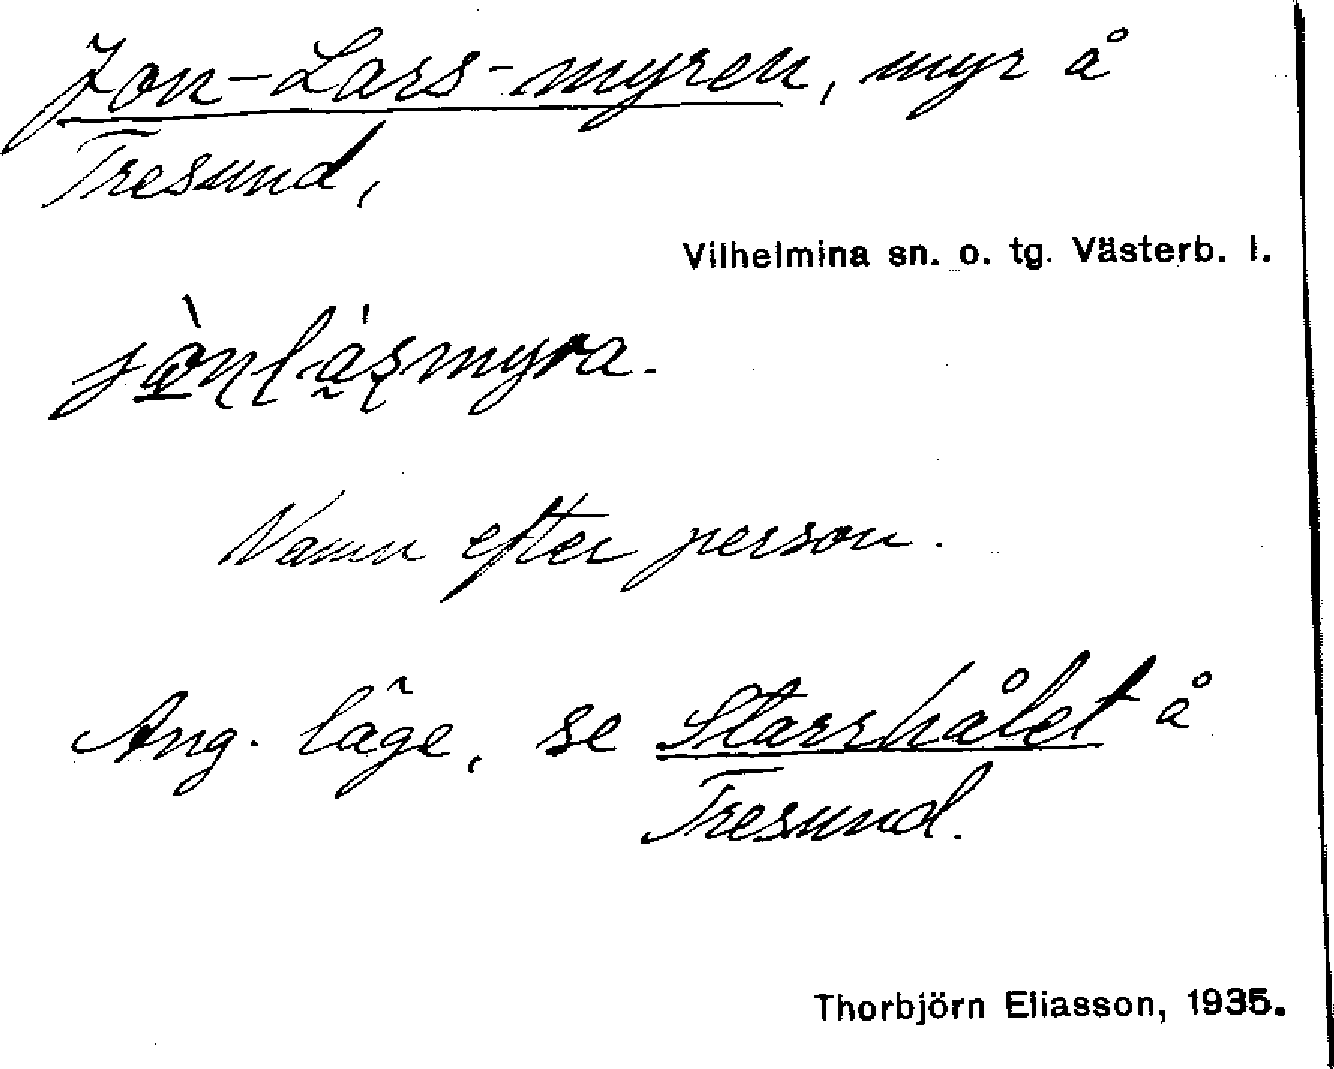 Jon-Lars-myren, myr å
Tresund,
Vilhelmina sn. o. tg. Västerb. l.
jò̲nlá̰ṣmyra.
Namn efter person.
Ang. läge, se Starrhålet å
Tresund.
Thorbjörn Eliasson, 1935.